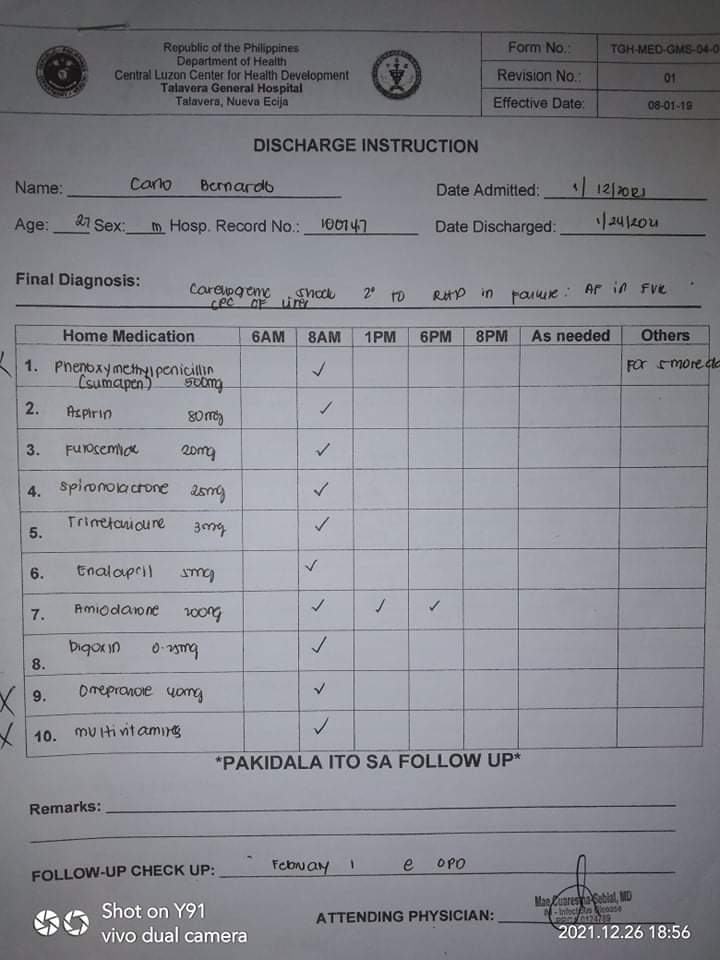 Republic of the Philippines
Department of Health
Central Luzon Center for Health Development
Talavera General Hospital
Talavera, Nueva Ecija
Form No.: TGH-MED-GMS-04-0
Revision No.: 01
Effective Date: 08-01-19
DISCHARGE INSTRUCTION
Name: Carlo Bernardo Date Admitted: 1/12/2021
Age: 27 Sex: m Hosp. Record No.: 100747 Date Discharged: 1/24/2021
Final Diagnosis: shock 2° to RHD in failure: AF in FVR
CPC OF liver
Home Medication 6AM 8AM 1PM 6PM 8PM As needed Others
1. Phenoxymethylpenicillin ✓ For 5 more da
(sumapen) 500mg
2. Aspirin 80mg ✓
3. Furosemide 20mg ✓
4. spironolactone 25mg ✓
5. 3mg ✓
6. Enalapril 5mg ✓
7. Amiodarone 200mg ✓ ✓ ✓
8. Digoxin 0.25mg ✓
9. 40mg ✓
10. multivitamins ✓
*PAKIDALA ITO SA FOLLOW UP*
Remarks:
FOLLOW-UP CHECK UP: February 1 @ OPD
ATTENDING PHYSICIAN: Mae Cuaresma-Sebial, MD
IM - Infectious Disease
Shot on Y91
vivo dual camera
2021.12.26 18:56